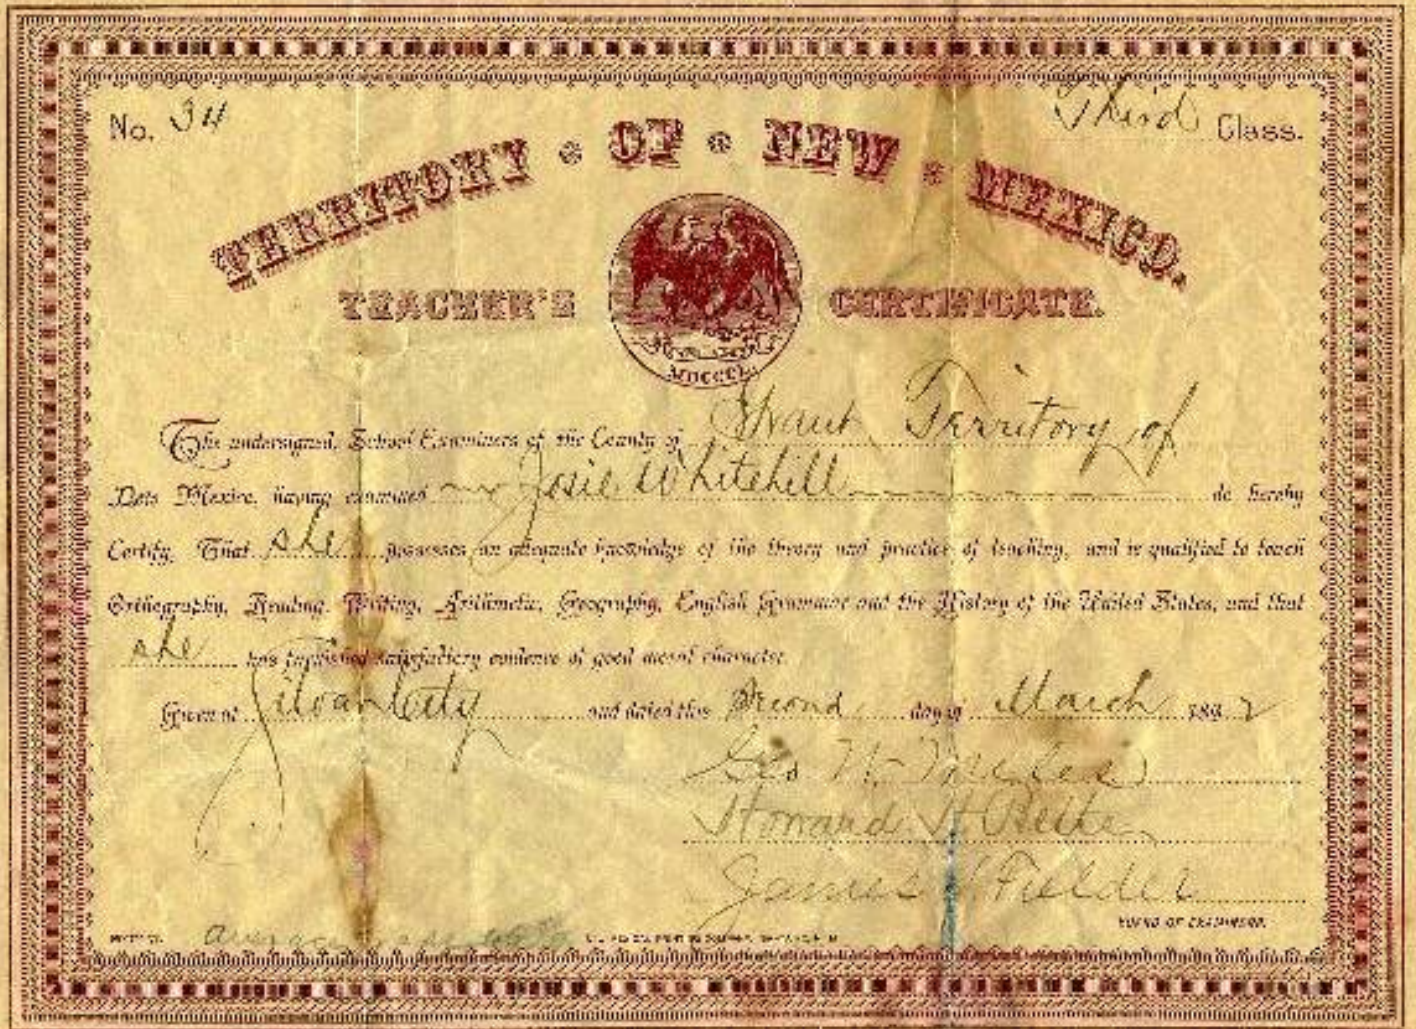 No. 34
Third Class.
TERRITORY OF NEW MEXICO.
TEACHER'S CERTIFICATE.
MDCCCL.
The undersigned, School Examiners of the County of Grant Territory of
New Mexico, having examined Josie Whitehill do hereby
Certify, That she possesses an adequate knowledge of the theory and practice of teaching, and is qualified to teach
Orthography, Reading, Writing, Arithmetic, Geography, English Grammar and the History of the United States, and that
she has furnished satisfactory evidence of good moral character.
Given at Silver City and dated this Second day of March 1892
Geo N.
Howard H. Betts
James S. Fielder
BOARD OF EXAMINERS.